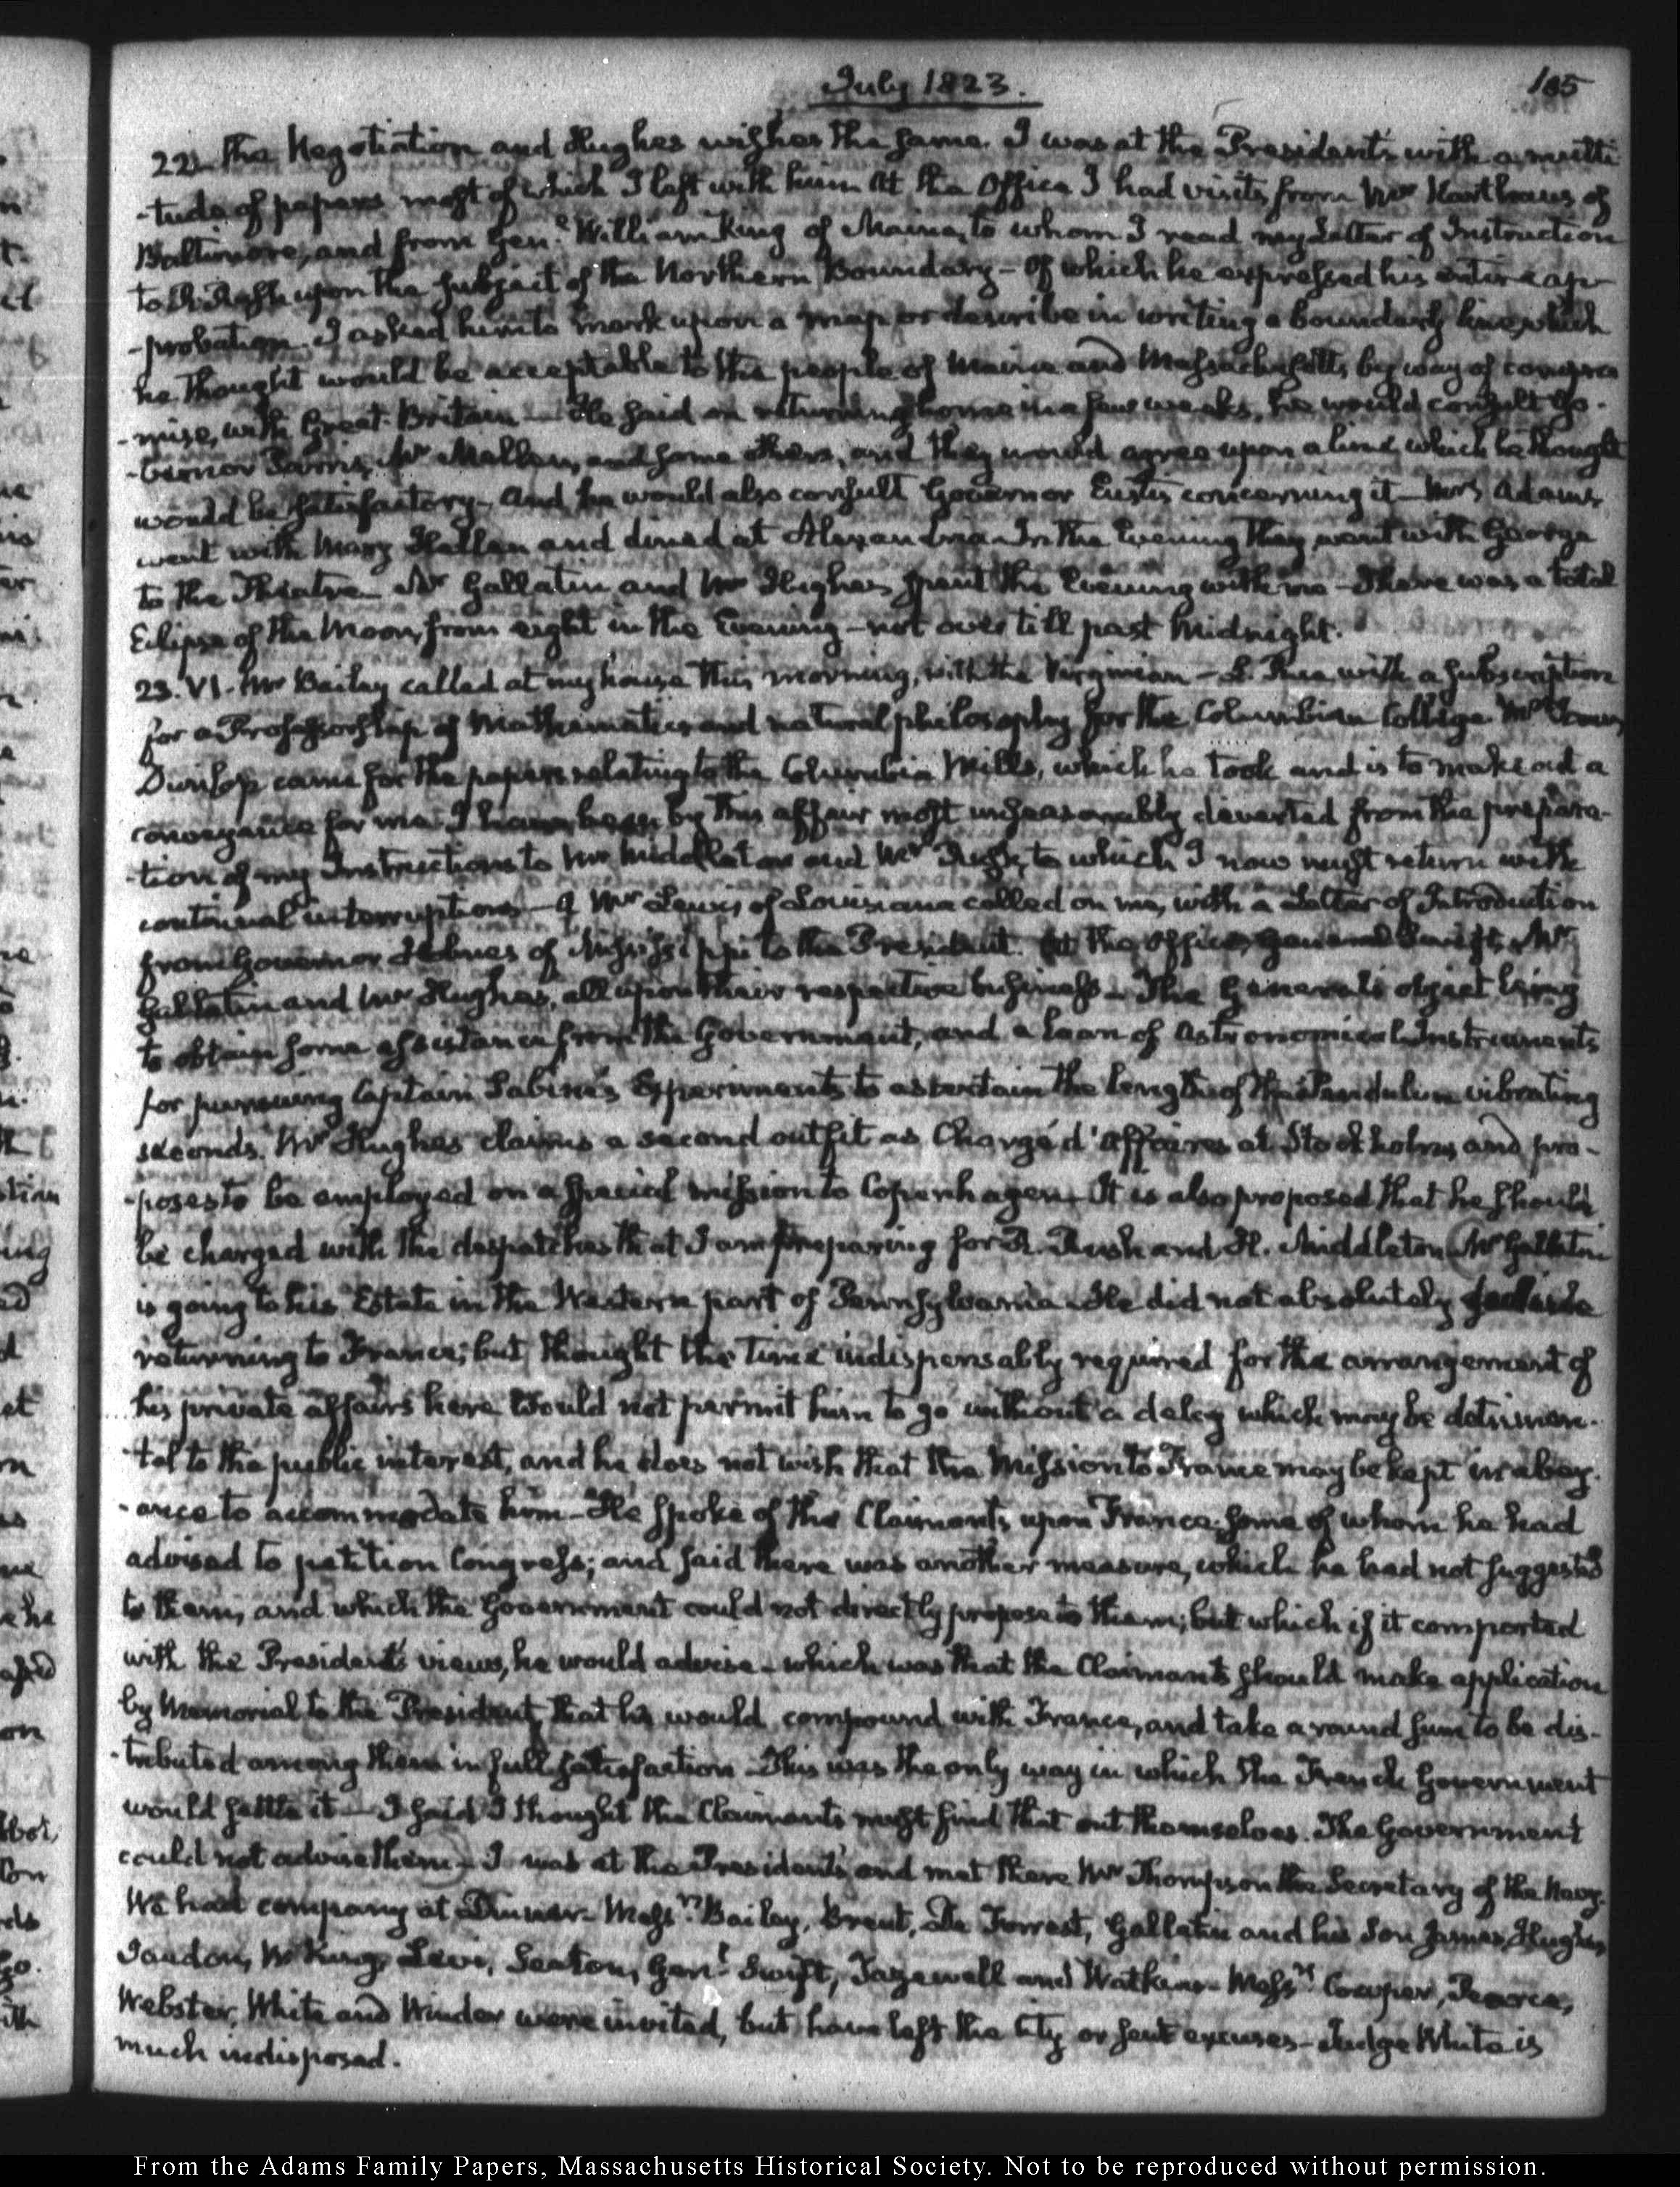 July 1823.
185
22. The Negotiation and Hughes wishes the same. I was at the President's with a multi
-tude of papers most of which I left with him. At the Office I had visits from Mr Karthaus of
Baltimore, and from Genl. William King of Maine, to whom I read my Letter of Instruction
to R. Rush upon the subject of the Northern Boundary – Of which he expressed his entire ap-
-probation. I asked him to mark upon a map or describe in writing a boundary line, which
he thought would be acceptable to the people of Maine and Massachusetts, by way of compro
-mise, with Great-Britain – He said on returning home in a few weeks, he would consult Go-
-vernor Parris, Mr Mellen, and some others, and they would agree upon a line which he thought
would be satisfactory – And he would also consult Governor Eustis concerning it – Mrs Adams,
went with Mary Hellen and dined at Alexandria. In the Evening they went with George
to the Theatre – Mr Gallatin and Mr Hughes spent the Evening with me – There was a total
Eclipse of the Moon, from eight in the Evening – not over till past Midnight.
23. VI. Mr Bailey called at my house this morning, with the Virginian – L. Rice with a subscription
for a Professorship of Mathematics and natural philosophy for the Columbian College. Mr
Dunlop came for the papers relating to the Columbia Mills, which he took and is to make out a
conveyance for me. I have been by this affair most unseasonably diverted from the prepara-
-tion of my Instructions to Mr Middleton and Mr Rush, to which I now must return with
continual interruptions – A Mr Lewis of Louisiana called on me, with a Letter of Introduction
from Governor Holmes of Mississippi to the President. At the Office, General Swift, Mr
Gallatin and Mr Hughes, all upon their respective business – The General's object being
to obtain some assistance from the Government, and a loan of Astronomical Instruments
for pursuing Captain Sabine's Experiments to ascertain the length of the Pendulum vibrating
seconds. Mr Hughes claims a second outfit as Chargé d'Affaires at Stockholm, and pro-
-poses to be employed on a special mission to Copenhagen – It is also proposed that he should
be charged with the despatches that I am preparing for R. Rush and H. Middleton. Mr Gallatin
is going to his Estate in the Western part of Pennsylvania. He did not absolutely decline
returning to France; but thought the time indispensably required for the arrangement of
his private affairs here would not permit him to go without a delay which may be detrimen-
-tal to the public interest, and he does not wish that the Mission to France may be kept in abey-
-ance to accommodate him – He spoke of the Claimants upon France; some of whom he had
advised to petition Congress; and said there was another measure, which he had not suggested
to them, and which the Government could not directly propose to them; but which if it comported
with the President's views, he would advise – which was that the Claimants should make application
by Memorial to the President, that he would compound with France, and take a round sum to be dis-
-tributed among them in full satisfaction – This was the only way in which the French Government
would settle it – I said I thought the Claimants must find that out themselves. The Government
could not advise them – I was at the President's and met there Mr Thompson the Secretary of the Navy.
We had company at Dinner – Messrs. Bailey, Brent, De Forrest, Gallatin and his Son James, Hughes,
Jaudon, W. King, Levi, Seaton, Genl. Swift, Tazewell and Watkins – Messrs Cowper, Pearce,
Webster, White and Winder were invited, but have left the City or sent excuses – Judge White is
much indisposed.
From the Adams Family Papers, Massachusetts Historical Society. Not to be reproduced without permission.